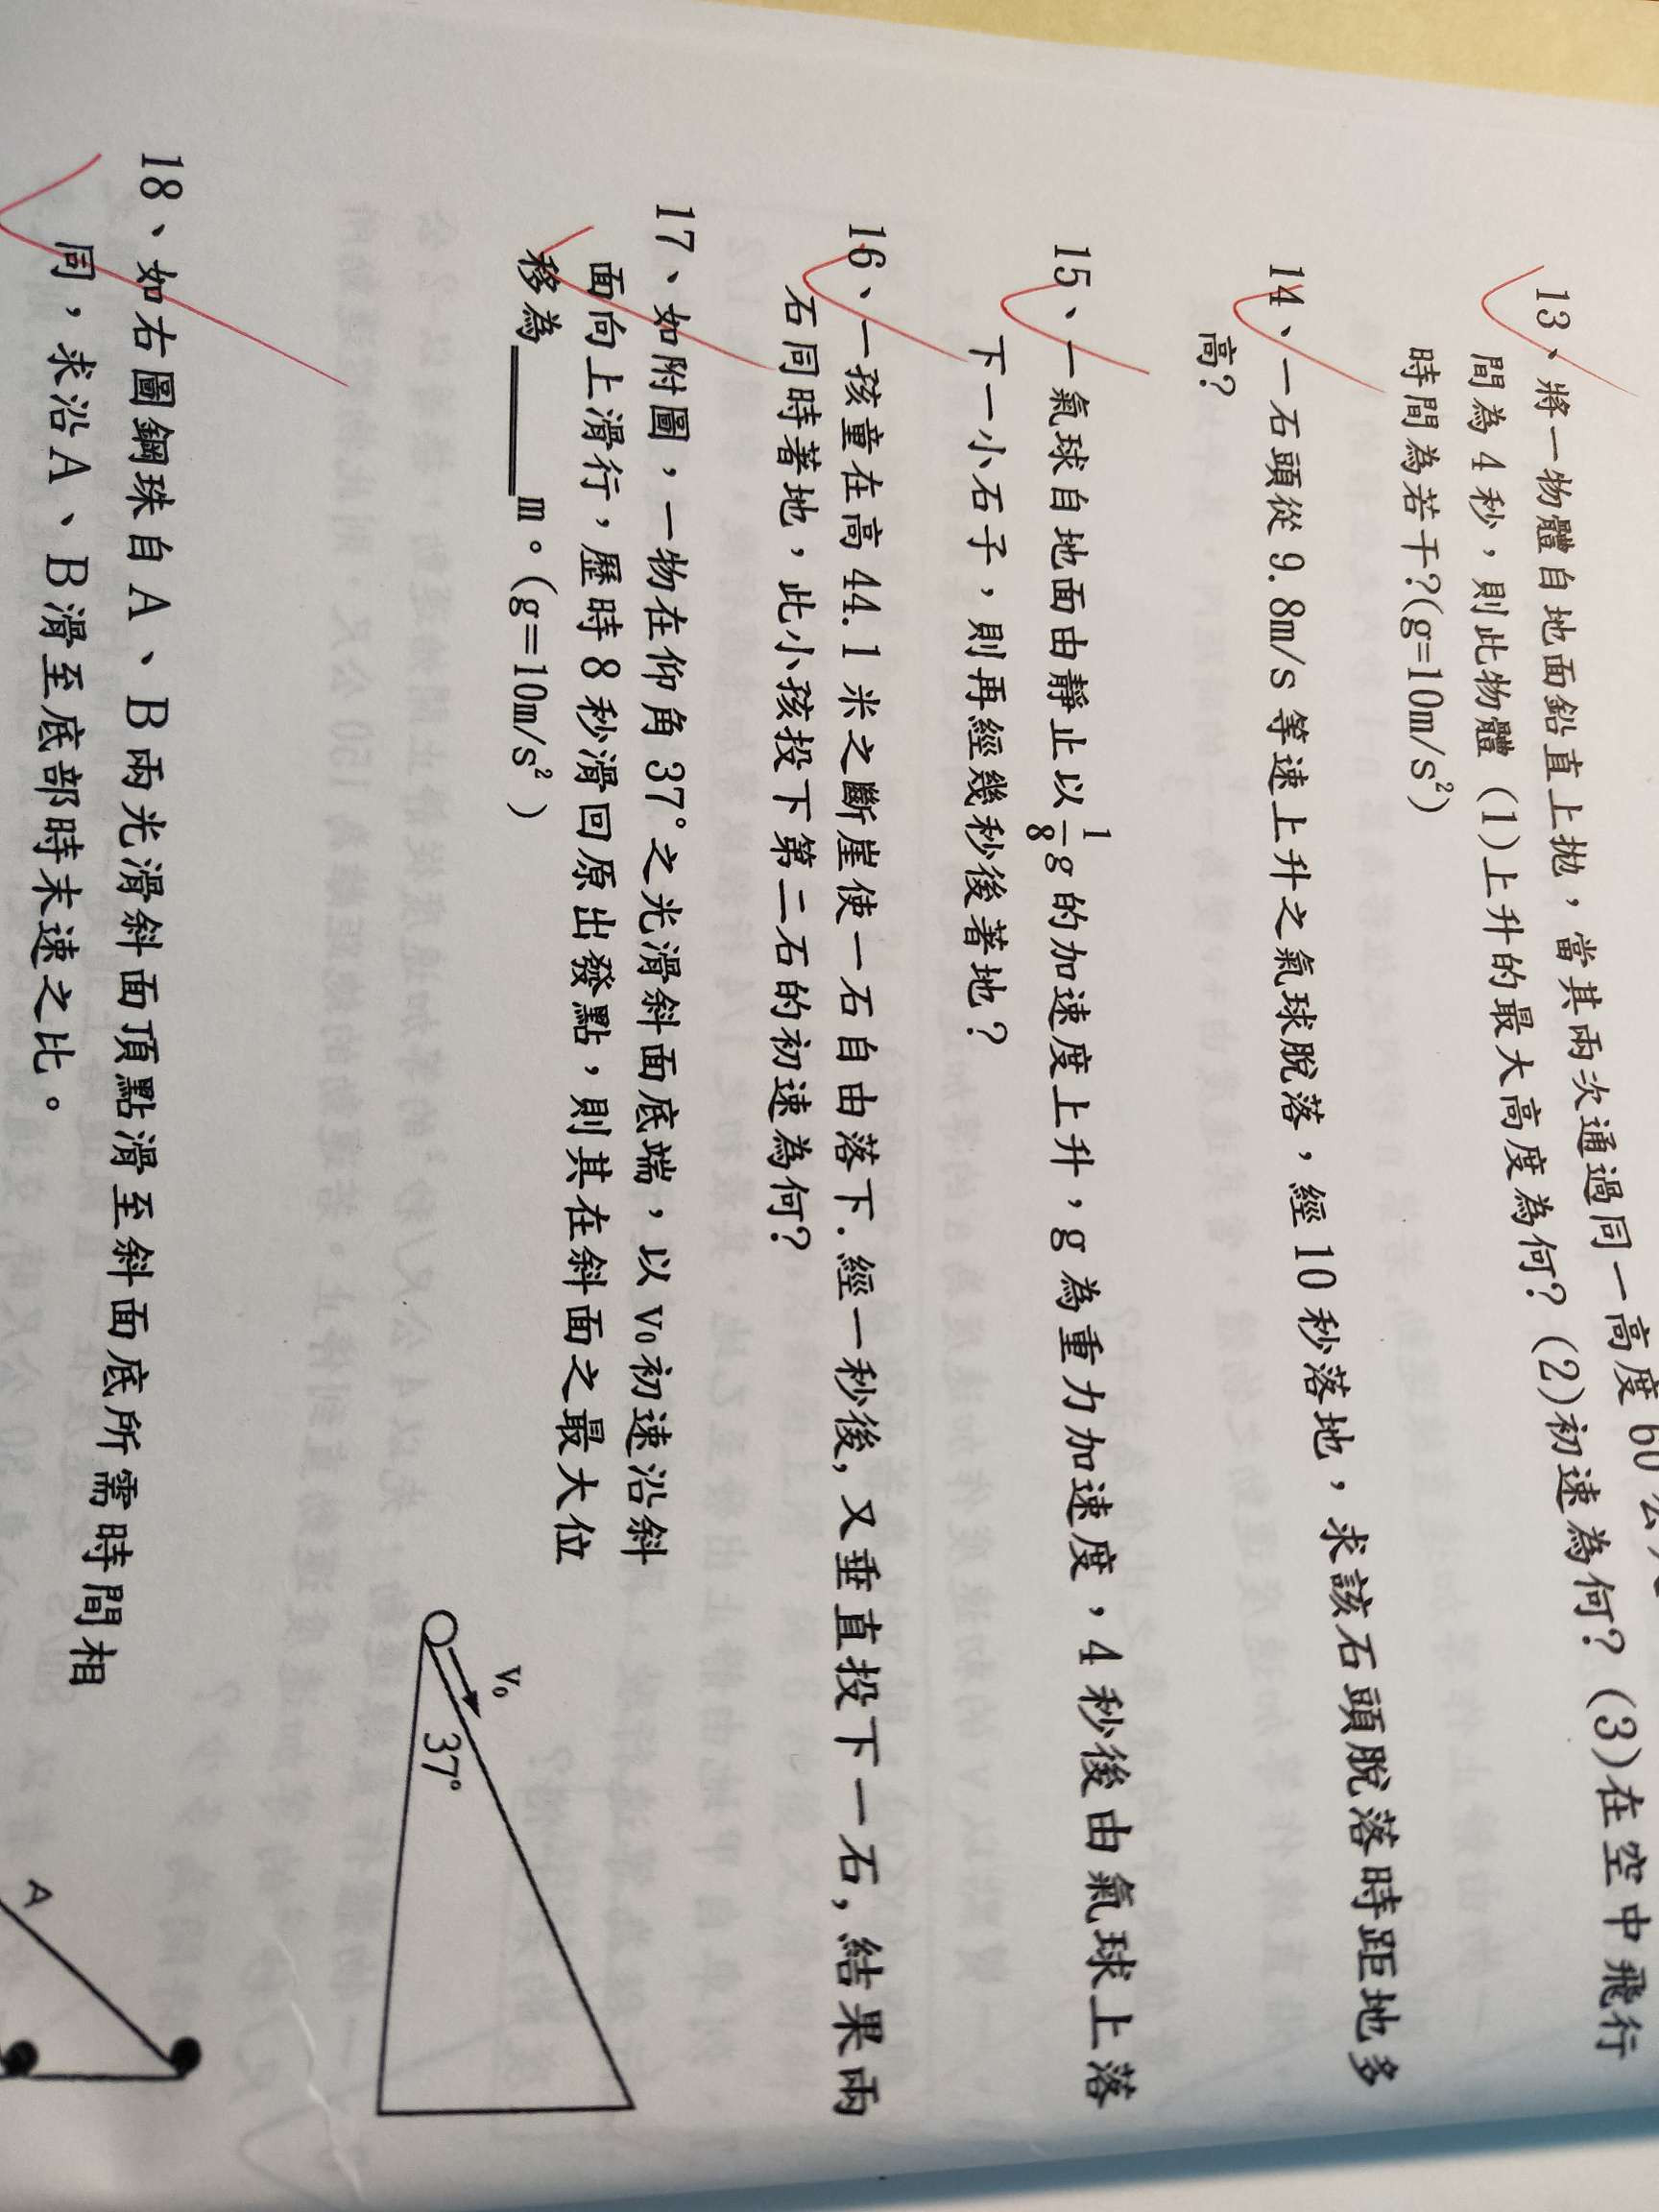 13、將一物體自地面鉛直上拋，當其兩次通過同一高度 60 公尺
間為 4 秒，則此物體 (1)上升的最大高度為何? (2)初速為何? (3)在空中飛行
時間為若干?(g=10m/s²)
14、一石頭從 9.8m/s 等速上升之氣球脫落，經 10 秒落地，求該石頭脫落時距地多
高?
15、一氣球自地面由靜止以 1/8 g 的加速度上升，g 為重力加速度，4 秒後由氣球上落
下一小石子，則再經幾秒後著地？
16、一孩童在高 44.1 米之斷崖使一石自由落下.經一秒後, 又垂直投下一石, 結果兩
石同時著地，此小孩投下第二石的初速為何?
17、如附圖，一物在仰角 37°之光滑斜面底端，以 v₀初速沿斜
面向上滑行，歷時 8 秒滑回原出發點，則其在斜面之最大位
移為____m。(g=10m/s²)
v₀
37°
18、如右圖鋼珠自A、B兩光滑斜面頂點滑至斜面底所需時間相
同，求沿A、B滑至底部時末速之比。
A